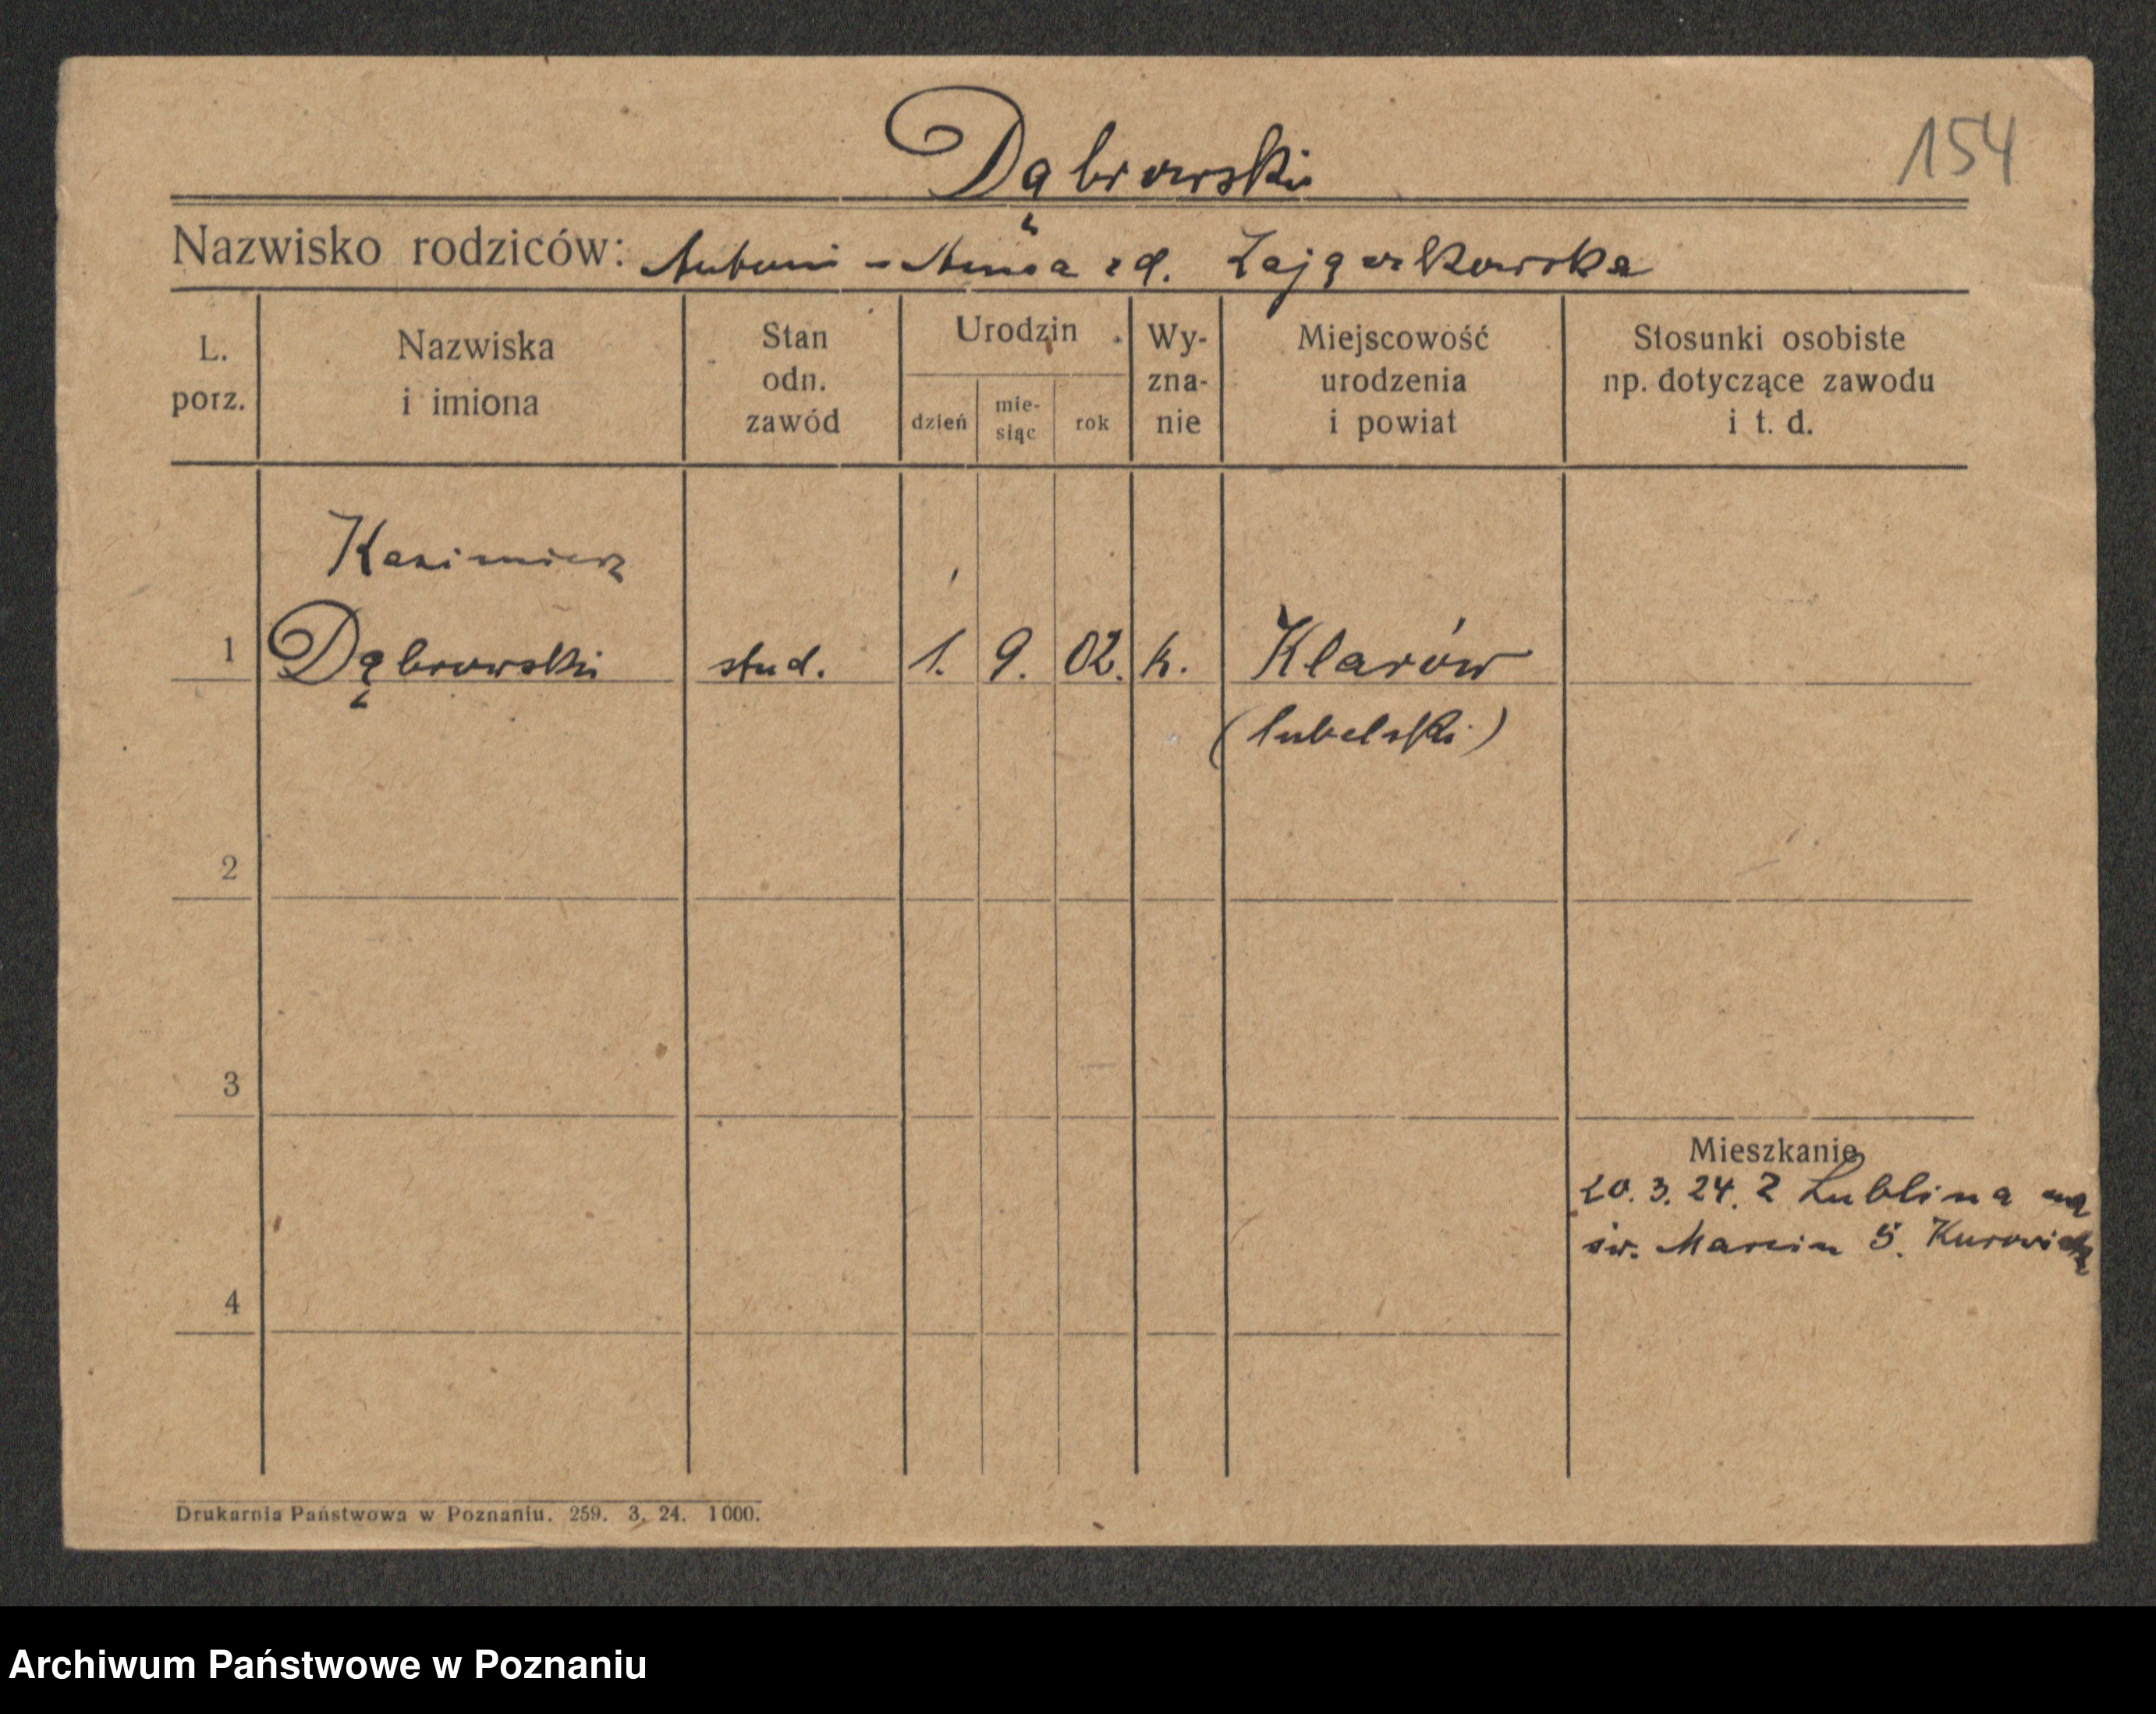 Dąbrowski
154
Nazwisko rodziców: Antoni - Anna zd. Zajączkowska
L. porz.
Nazwiska i imiona
Stan odn. zawód
Urodzin
dzień
mie-siąc
rok
Wy-zna-nie
Miejscowość urodzenia i powiat
Stosunki osobiste np. dotyczące zawodu i t. d.
Kazimierz
1 Dąbrowski stud. 1. 9. 02. k. Klarów
(lubelski)
2
3
Mieszkanie
20. 3. 24. z Lublina na
św. Marcin 5.
4
Drukarnia Państwowa w Poznaniu. 259. 3. 24. 1000.
Archiwum Państwowe w Poznaniu